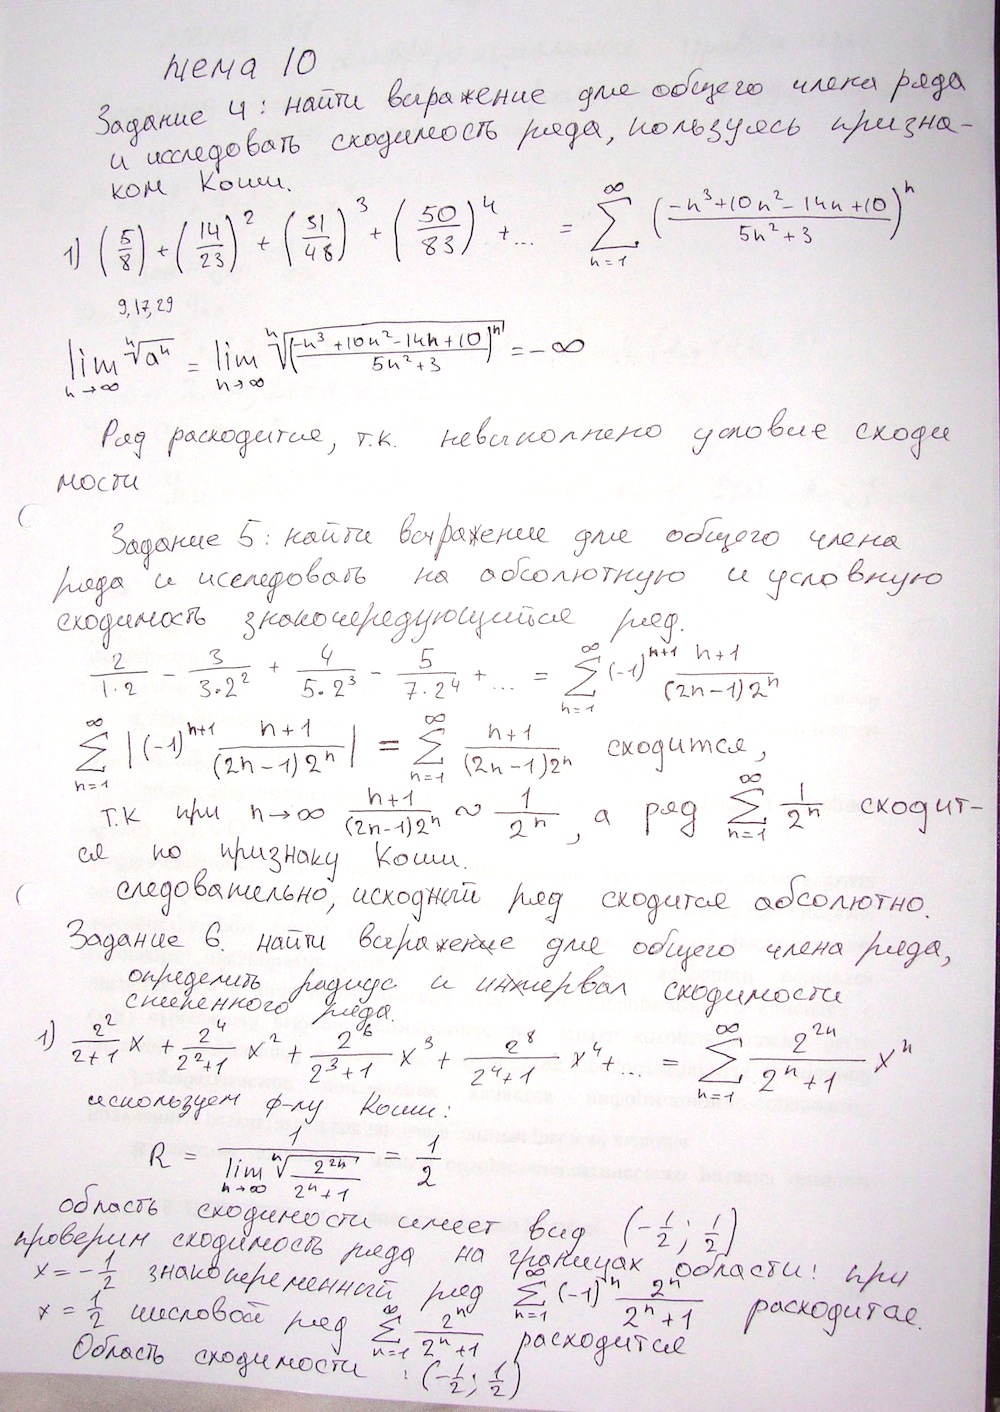 тема 10
Задание 4: найти выражение для общего члена ряда
и исследовать сходимость ряда, пользуясь призна-
ком Коши.
1) (5/8) + (14/23)^2 + (31/48)^3 + (50/83)^4 + ... = ∑_{n=1}^{∞} ((-n^3+10n^2-14n+10)/(5n^2+3))^n
9,17,29
lim_{n→∞} ⁿ√(a^n) = lim_{n→∞} ⁿ√(((-n^3+10n^2-14n+10)/(5n^2+3))^n) = -∞
Ряд расходится, т.к. невыполнено условие сходи
мости
Задание 5: найти выражение для общего члена
ряда и исследовать на абсолютную и условную
сходимость знакочередующийся ряд.
2/(1·2) - 3/(3·2^2) + 4/(5·2^3) - 5/(7·2^4) + ... = ∑_{n=1}^{∞} (-1)^{n+1} (n+1)/((2n-1)2^n)
∑_{n=1}^{∞} |(-1)^{n+1} (n+1)/((2n-1)2^n)| = ∑_{n=1}^{∞} (n+1)/((2n-1)2^n) сходится,
т.к при n→∞ (n+1)/((2n-1)2^n) ~ 1/2^n, а ряд ∑_{n=1}^{∞} 1/2^n сходит-
ся по признаку Коши.
следовательно, исходный ряд сходится абсолютно.
Задание 6. найти выражение для общего члена ряда,
определить радиус и интервал сходимости
степенного ряда.
1) 2^2/(2+1) x + 2^4/(2^2+1) x^2 + 2^6/(2^3+1) x^3 + 2^8/(2^4+1) x^4 + ... = ∑_{n=1}^{∞} 2^{2n}/(2^n+1) x^n
используем ф-лу Коши:
R = 1/(lim_{n→∞} ⁿ√(2^{2n}/(2^n+1))) = 1/2
область сходимости имеет вид (-1/2; 1/2)
проверим сходимость ряда на границах области: при
x = -1/2 знакопеременный ряд ∑_{n=1}^{∞} (-1)^n 2^n/(2^n+1) расходится.
x = 1/2 числовой ряд ∑_{n=1}^{∞} 2^n/(2^n+1) расходится
Область сходимости : (-1/2; 1/2)